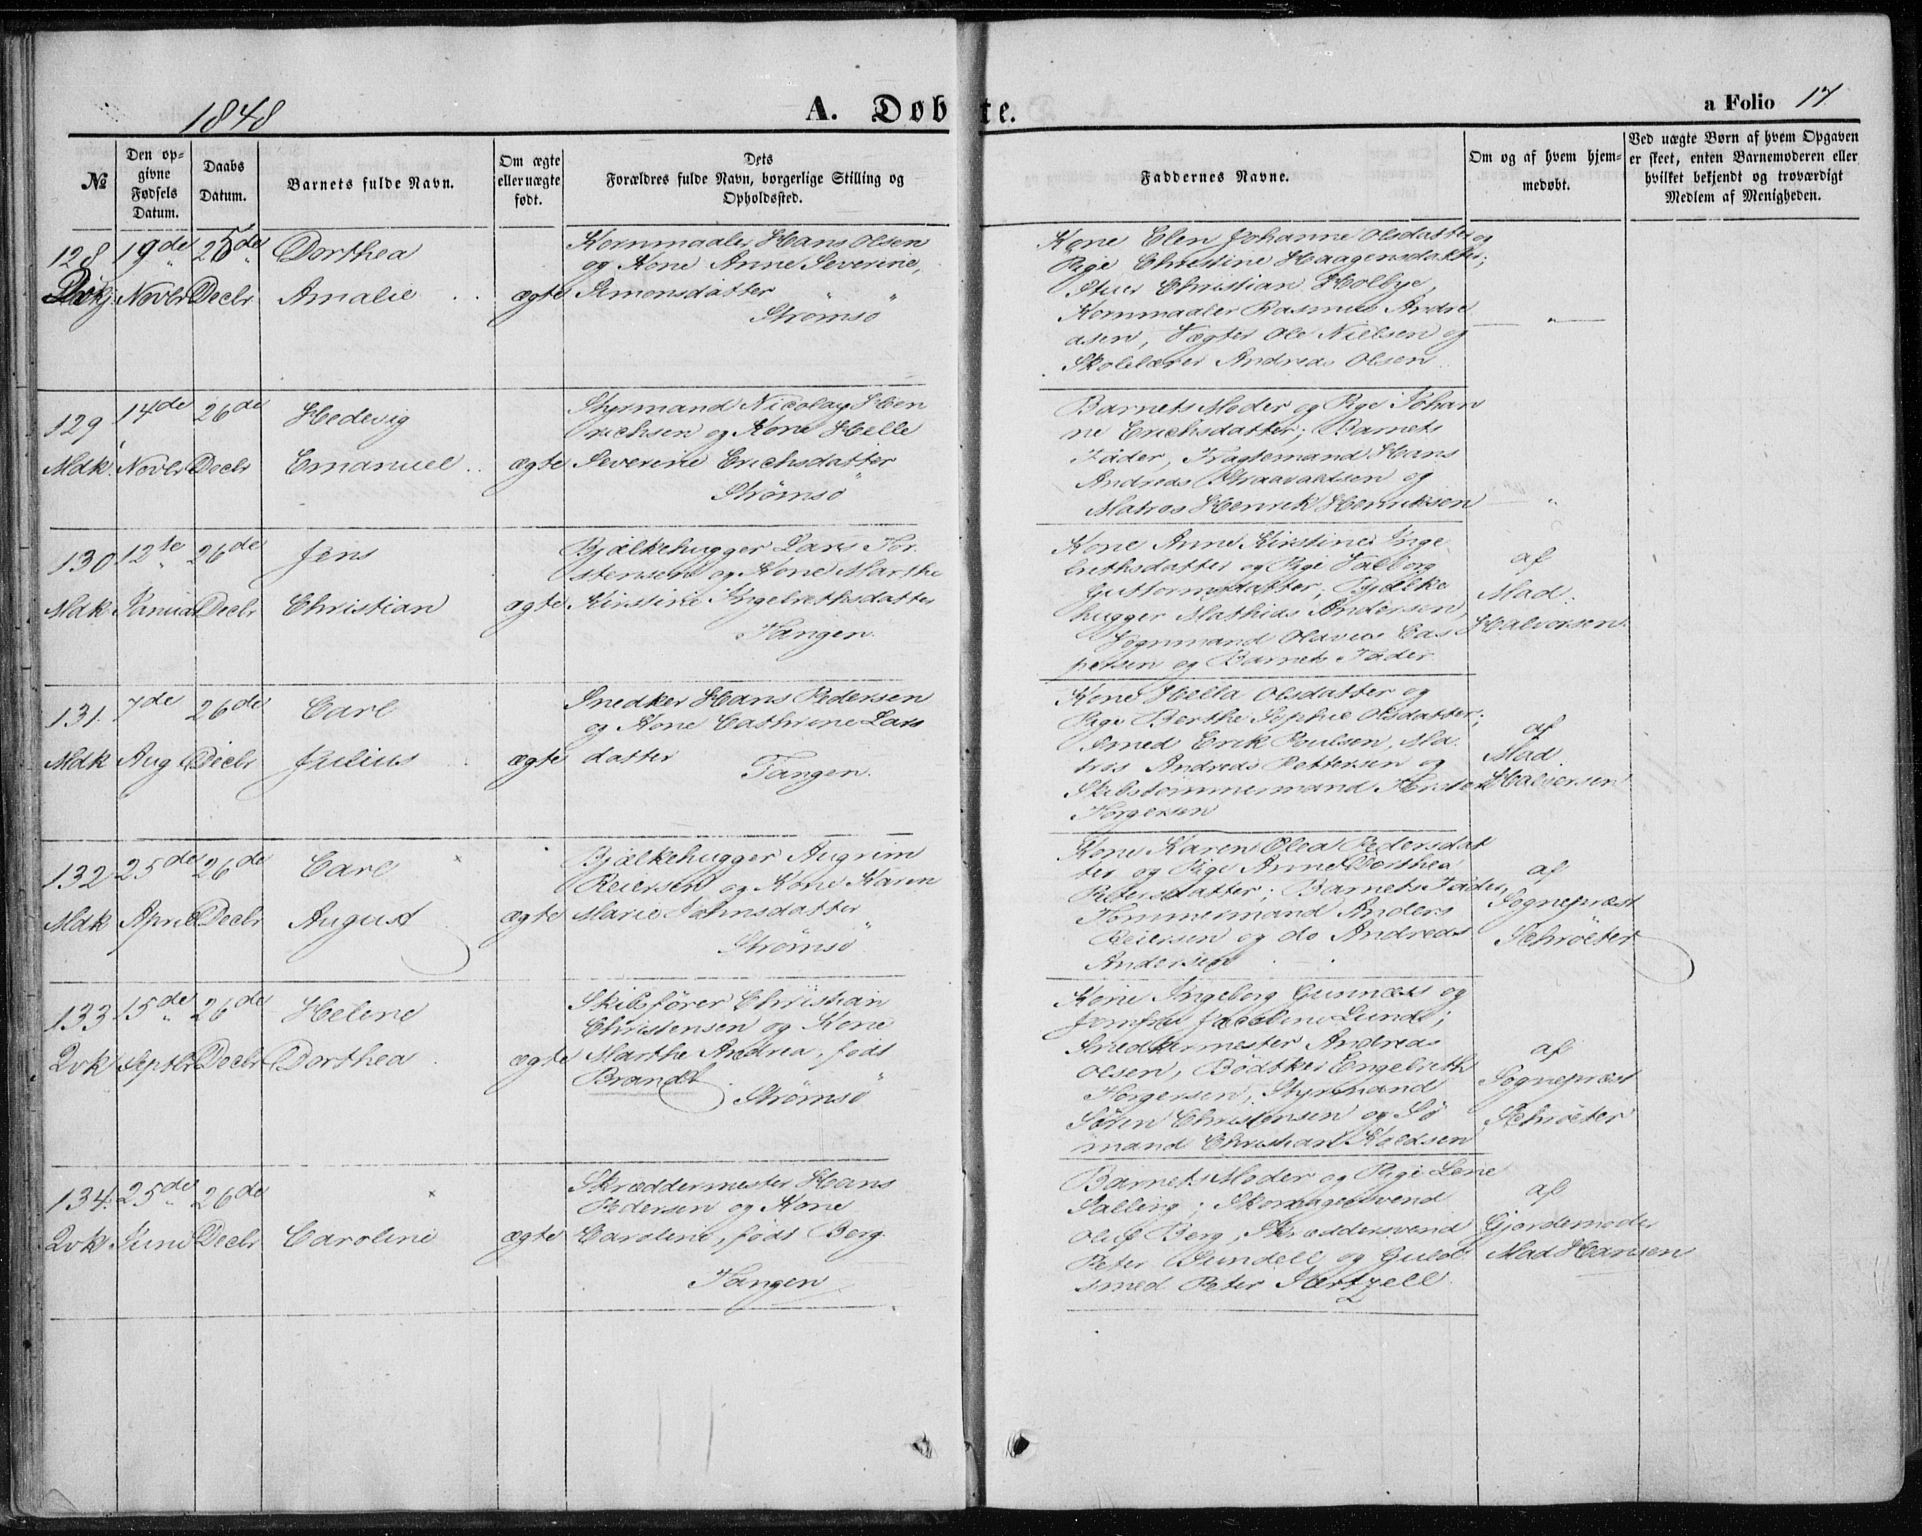 1848
A. Døbte.
a Folio 17
№
Den op-
givne
Fødsels
Datum.
Daabs
Datum.
Barnets fulde Navn.
Om ægte
eller uægte
født.
Dets
Forældres fulde Navn, borgerlige Stilling og
Opholdssted.
Faddernes Navne.
Om og af hvem hjem-
medøbt.
Ved uægte Børn af hvem Opgaven
er skeet, enten Barnemoderen eller
hvilket bekjendt og troværdigt
Medlem af Menigheden.
128 19de 25de Dorthea
Novbr Decbr Amalie ægte
Kornmaaler Hans Olsen
og Kone Anne Severine
Simonsdatter
Strømsö
Kone Elen Johanne Olsdatter og
Pige Christine Haagensdatter;
Christian Holbye,
Kornmaaler Rasmus Andre
asen, Vægter Ole Nielsen og
Skolelærer Andreas Olsen
129 14de 26de Hedevig
Mdk Novbr Decbr Emanuel ægte
Styrmand Nicolay Hen
richsen og Kone Helle
Severine Erichsdatter
Strømsö
Barnets Moder og Pige Johan
ne Erichsdatter; Barnets
Fader, Fragtemand Hans
Andreas
og
Matros Henrik Henriksen
130 12te 26de Jens
Mdk Januar Decbr Christian ægte
Bjælkehugger Lars Tor
stensen og Kone Marthe
Kirstine Ingelrethsdatter
Tangen.
Kone Anne Kirstine Inge
brethsdatter og Pige Valborg
Guttormsdatter; Bjælke
hugger Mathias Andersen,
Sognmand Olavus Cas
persen og Barnets Fader
af
Mad.
Halvorsen.
131. 7de 26de Carl
Mdk Aug Decbr Julius ægte
Snedker Hans Pedersen
og Kone Cathrine Lars
datter
Tangen.
Kone Hella Olsdatter og
Pige Berthe Sophie Olsdatter;
Smed Erik Poulsen, Ma
tros Andreas Pettersen og
Skibstømmermand
Torgersen
af
Mad.
Halvorsen
132 25de 26de Carl
Mdk April Decbr August ægte
Bjælkehugger Augrim
Reiersen og Kone Karen
Marie Johnsdatter
Strømsö
Kone Karen Olea Pedersdat
ter og Pige Anne Dorthea
Petersdatter; Barnets Fader,
Tömmermand Anders
Reiersen og do Andreas
Andersen
af
Sognepræst
Schröeter
133 15de 26de Helene
Qvk Septbr Decbr Dorthea ægte
Skibsförer Christian
Christensen og Kone
Marthe Andrea, født
Brandt.
Strømsö
Kone Ingeborg Gunnæss og
Jomfru Jacobine Lund;
Snedkermester Andreas
Olsen, Bödtker Engelbreth
Torgersen, Styrmand
Sören Christensen og Sö
mand Christian Koldsen
af
Sognepræst
Schröeter
134. 25de 26de
Qvk Juni Decbr Caroline ægte
Skræddermester Hans
Pedersen og Kone
Caroline, født Berg.
Tangen
Barnets Moder og Pige Lene
Salling; Skomagersvend
Oluf Berg, Skræddersvend
Peter Sundell og Guld
smed Peter Sartzell
af
Gjordemoder
Mad Hansen